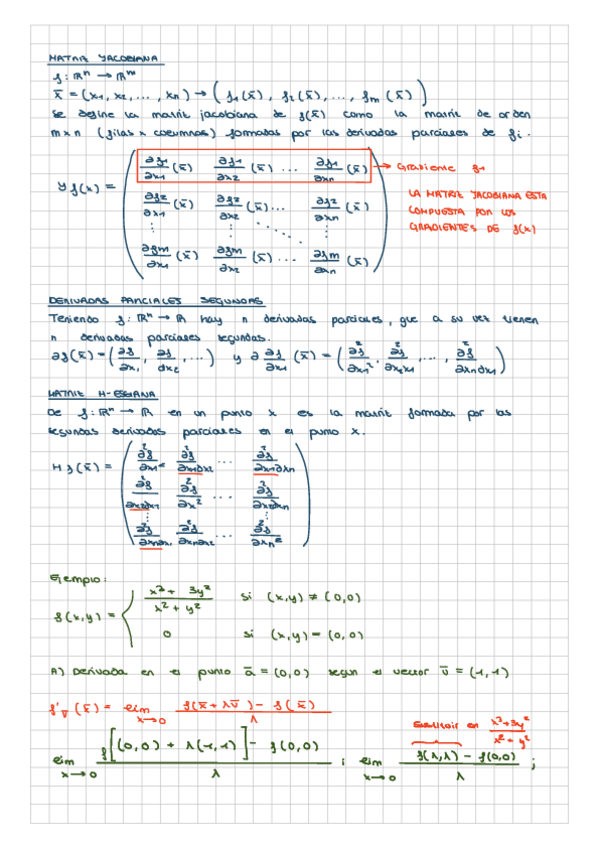 MATRIZ JACOBIANA
f: ℝⁿ → ℝᵐ
x̄ = (x₁, x₂, ..., xₙ) → (f₁(x̄), f₂(x̄), ..., fₘ(x̄))
Se define la matriz jacobiana de f(x̄) como la matriz de orden
m×n (filas × columnas) formadas por las derivadas parciales de fi.
∂f₁/∂x₁ (x̄) ∂f₁/∂x₂ (x̄) ... ∂f₁/∂xₙ (x̄) → Gradiente f₁
J f(x) = ∂f₂/∂x₁ (x̄) ∂f₂/∂x₂ (x̄) ... ∂f₂/∂xₙ (x̄)
LA MATRIZ JACOBIANA ESTA
COMPUESTA POR LOS
GRADIENTES DE f(x)
∂fm/∂x₁ (x̄) ∂fm/∂x₂ (x̄) ... ∂fm/∂xₙ (x̄)
DERIVADAS PARCIALES SEGUNDAS
Teniendo f: ℝⁿ → ℝ hay n derivadas parciales, que a su vez tienen
n derivadas parciales segundas.
∂f(x̄) = (∂f/∂x₁, ∂f/∂x₂, ...) y ∂ ∂f/∂x₁ (x̄) = (∂²f/∂x₁², ∂²f/∂x₂x₁, ..., ∂²f/∂xₙ∂x₁)
MATRIZ H-ESSIANA
De f: ℝⁿ → ℝ en un punto x es la matriz formada por las
segundas derivadas parciales en el punto x.
∂²f/∂x₁² ∂²f/∂x₁∂x₂ ... ∂²f/∂x₁∂xₙ
H f(x̄) = ∂²f/∂x₂∂x₁ ∂²f/∂x² ... ∂²f/∂x₂∂xₙ
∂²f/∂xₙ∂x₁ ∂²f/∂xₙ∂x₂ ... ∂²f/∂xₙ²
Ejemplo:
f(x,y) = { x³ + 3y² / x² + y² si (x,y) ≠ (0,0)
0 si (x,y) = (0,0)
A) Derivada en el punto ā = (0,0) según el vector v̄ = (1,1)
f'v̄ (x̄) = lim x→0 f(x̄ + λv̄) - f(x̄) / λ
Sustituir en x³+3y² / x² + y²
lim x→0 f[(0,0) + λ(1,1)] - f(0,0) / λ ; lim x→0 f(λ,λ) - f(0,0) / λ ;